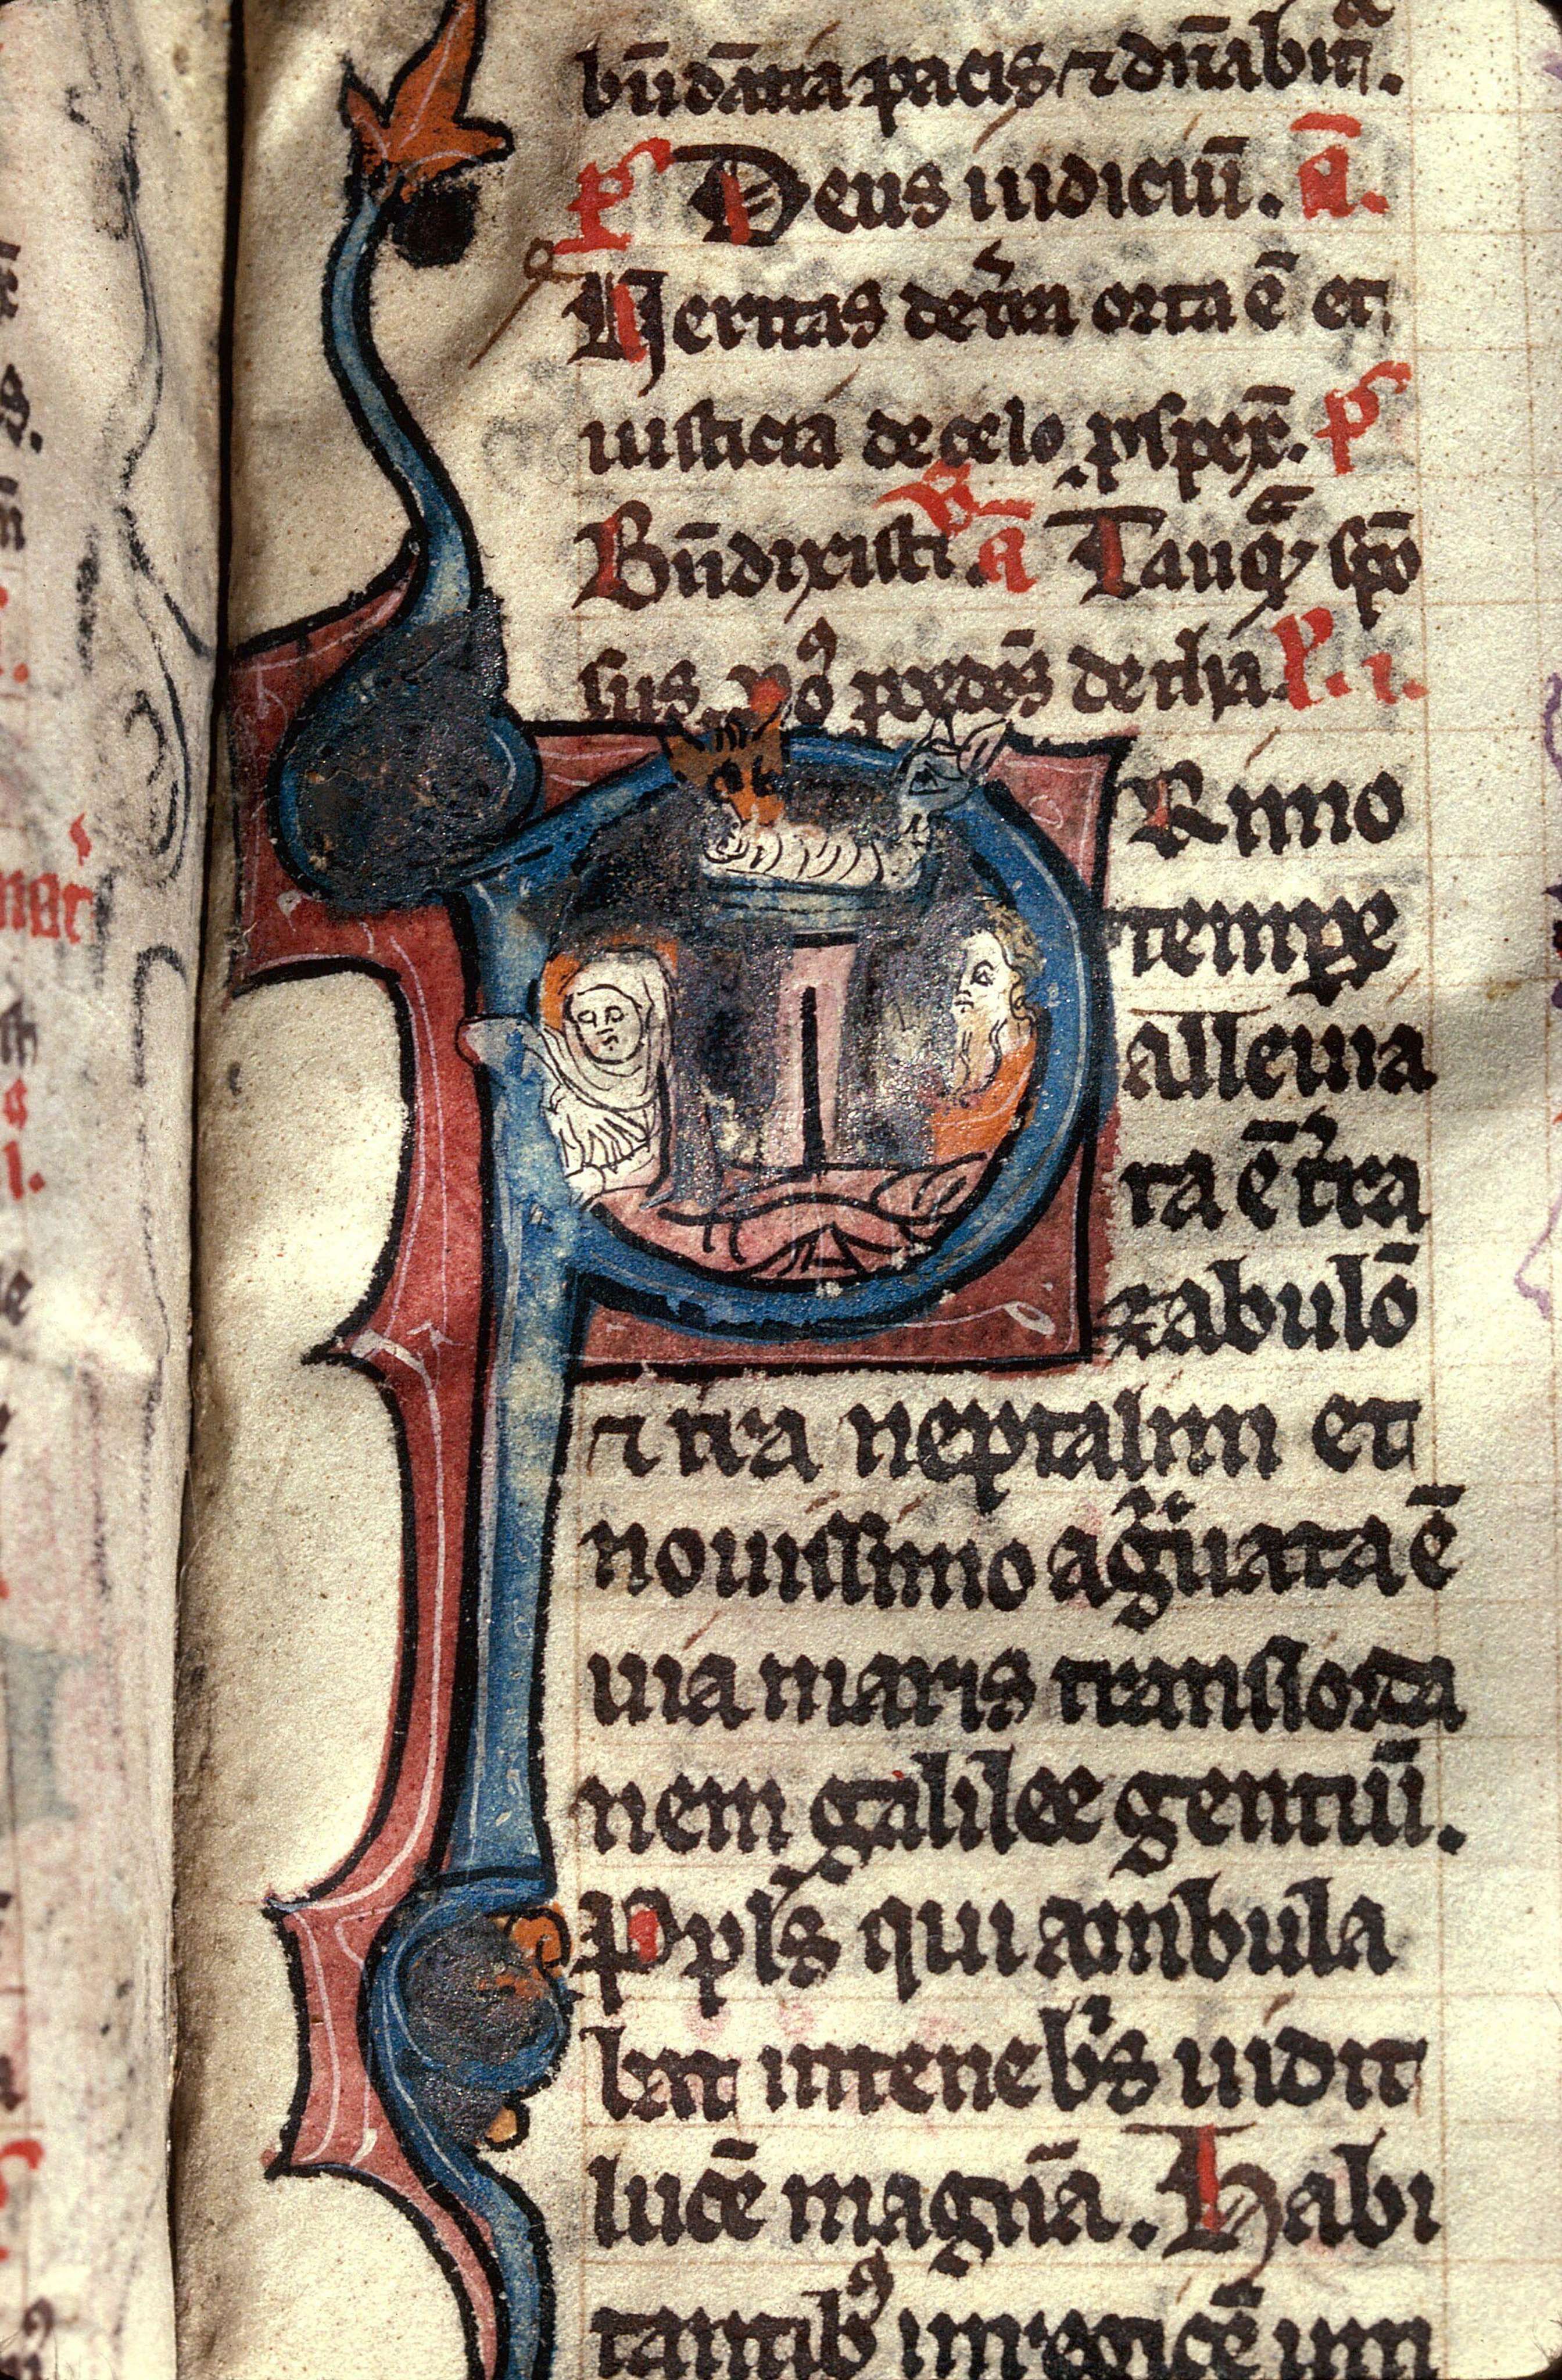 būdātia pacis ⁊ dn̄abit̉.
ps̉ Deus iudiciū. ā.
Ueritas det̉ra orta ē et
iusticia de celo ꝓspex̄. ps̉
Bn̄dixisti. ā Tanq̄ꝫ spō
sus dn̄s ꝓcedēs de thā. R̉. i.
Rimo
tempꝛe
alleuia
ta ē t̉ra
zabulō
⁊ tr̄a neptalim et
nouissimo ag̉uata ē
uia maris trans iorda
nem galilee gentiū.
Ppl̄s qui ambula
bat in teneb̉s uidit
lucē magnā. Habi
tantibꝰ in regiōe um